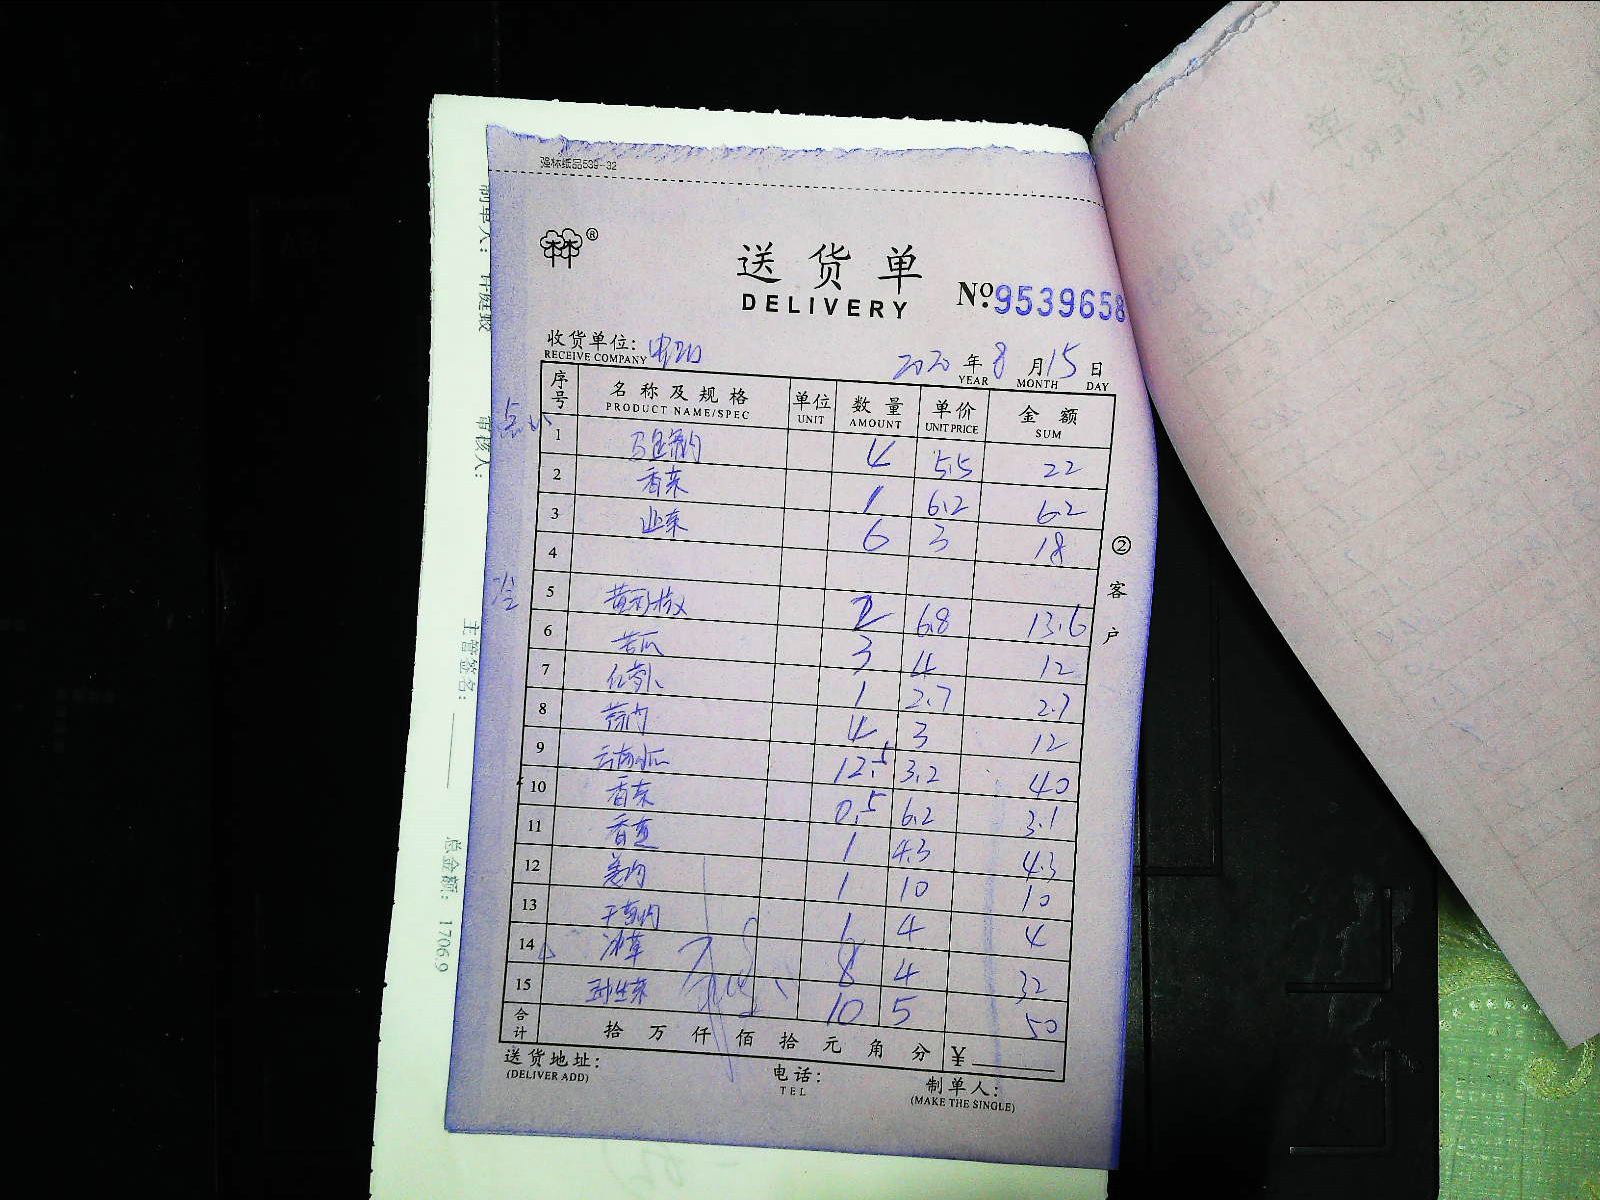 强林纸品539-32
送货单
DELIVERY
№ 9539658
收货单位:
RECEIVE COMPANY
2020年8月15日
YEAR MONTH DAY
序号 名称及规格 单位 数量 单价 金额
PRODUCT NAME/SPEC UNIT AMOUNT UNIT PRICE SUM
1 4 5.5 22
2 香菜 1 6.2 6.2
3 韭菜 6 3 18
4
5 2 6.8 13.6
6 苦瓜 3 4 12
7 1 2.7 2.7
8 4 3 12
9 云南小瓜 12.5 3.2 40
10 香菜 0.5 6.2 3.1
11 1 4.3 4.3
12 1 10 10
13 1 4 4
14 冰草 8 4 32
15 10 5 50
合计 拾万仟佰拾元角分 ¥
送货地址:
(DELIVER ADD)
电话:
TEL
制单人:
(MAKE THE SINGLE)
②客户
审核人:
主管签名:
总金额: 1706.9